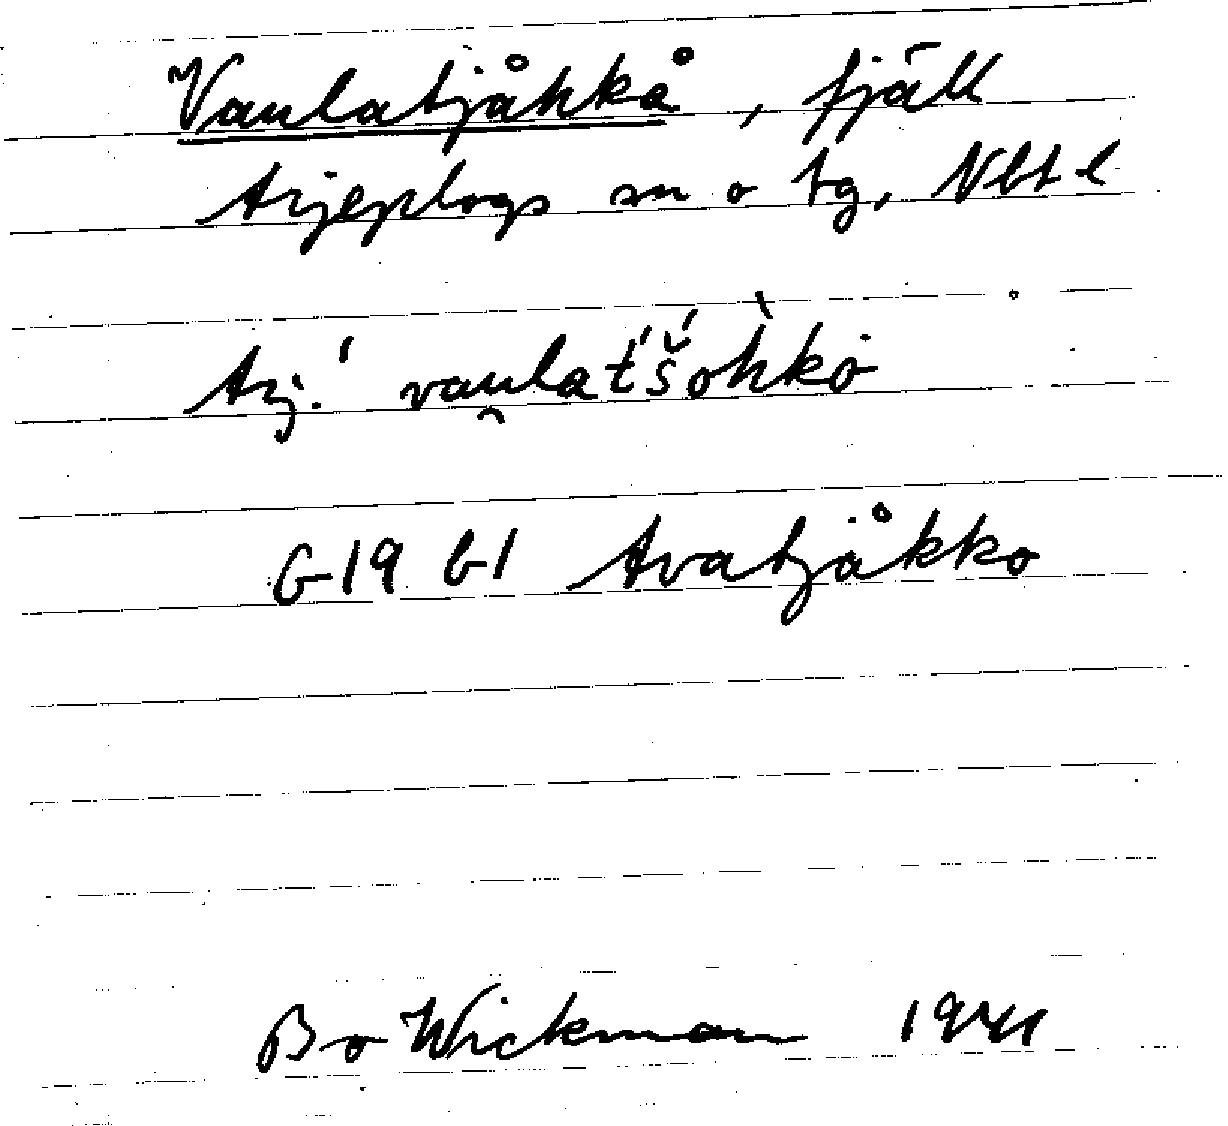 Vaulatjåhkå, fjäll
Arjeplogs sn o tg, Nbt l
Arj. ˈvau̯lat́š́òhkȯ
G 19 b1 Avatjåkko
Bo Wickman 1944